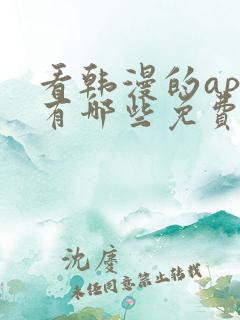 看韩漫的ap
有哪些免费
沈废
未经同意禁止转载